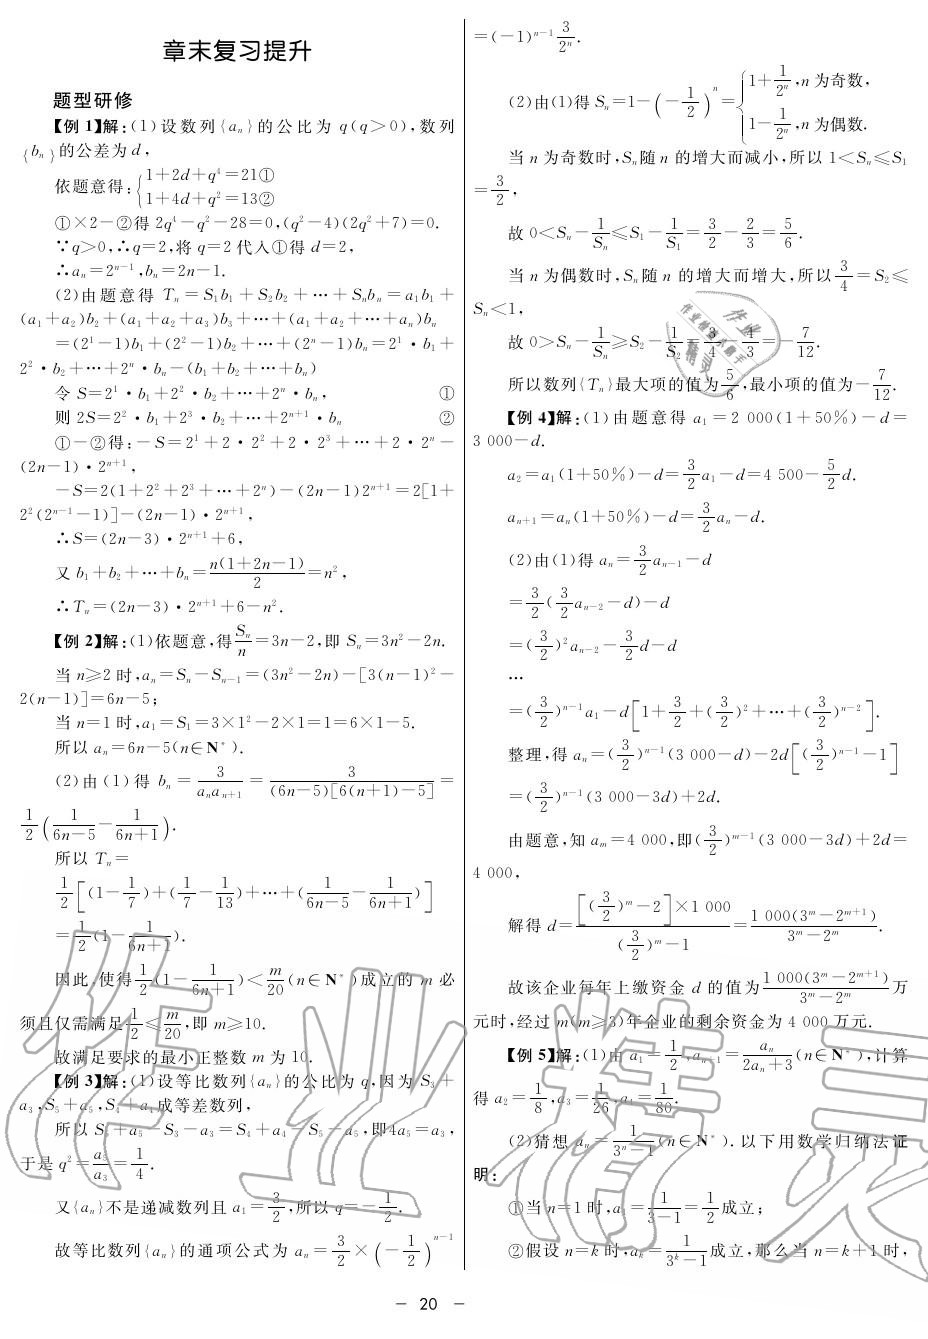 章末复习提升
题型研修
【例 1】解:(1)设数列{aₙ}的公比为 q(q>0),数列
{bₙ}的公差为 d,
依题意得:{1+2d+q⁴=21①
1+4d+q²=13②
①×2-②得 2q⁴-q²-28=0,(q²-4)(2q²+7)=0.
∵q>0,∴q=2,将 q=2 代入①得 d=2,
∴aₙ=2ⁿ⁻¹,bₙ=2n-1.
(2)由题意得 Tₙ=S₁b₁+S₂b₂+…+Sₙbₙ=a₁b₁+
(a₁+a₂)b₂+(a₁+a₂+a₃)b₃+…+(a₁+a₂+…+aₙ)bₙ
=(2¹-1)b₁+(2²-1)b₂+…+(2ⁿ-1)bₙ=2¹·b₁+
2²·b₂+…+2ⁿ·bₙ-(b₁+b₂+…+bₙ)
令 S=2¹·b₁+2²·b₂+…+2ⁿ·bₙ, ①
则 2S=2²·b₁+2³·b₂+…+2ⁿ⁺¹·bₙ ②
①-②得:-S=2¹+2·2²+2·2³+…+2·2ⁿ-
(2n-1)·2ⁿ⁺¹,
-S=2(1+2²+2³+…+2ⁿ)-(2n-1)2ⁿ⁺¹=2[1+
2²(2ⁿ⁻¹-1)]-(2n-1)·2ⁿ⁺¹,
∴S=(2n-3)·2ⁿ⁺¹+6,
又 b₁+b₂+…+bₙ=n(1+2n-1)/2=n²,
∴Tₙ=(2n-3)·2ⁿ⁺¹+6-n².
【例 2】解:(1)依题意,得Sₙ/n=3n-2,即 Sₙ=3n²-2n.
当 n≥2 时,aₙ=Sₙ-Sₙ₋₁=(3n²-2n)-[3(n-1)²-
2(n-1)]=6n-5;
当 n=1 时,a₁=S₁=3×1²-2×1=1=6×1-5.
所以 aₙ=6n-5(n∈N*).
(2)由(1)得 bₙ=3/(aₙaₙ₊₁)=3/((6n-5)[6(n+1)-5])=
1/2(1/(6n-5)-1/(6n+1)).
所以 Tₙ=
1/2[(1-1/7)+(1/7-1/13)+…+(1/(6n-5)-1/(6n+1))]
=1/2(1-1/(6n+1)).
因此,使得1/2(1-1/(6n+1))<m/20(n∈N*)成立的 m 必
须且仅需满足1/2≤m/20,即 m≥10.
故满足要求的最小正整数 m 为 10.
【例 3】解:(1)设等比数列{aₙ}的公比为 q,因为 S₃+
a₃,S₅+a₅,S₄+a₄成等差数列,
所以 S₅+a₅-S₃-a₃=S₄+a₄-S₅-a₅,即4a₅=a₃,
于是 q²=a₅/a₃=1/4.
又{aₙ}不是递减数列且 a₁=3/2,所以 q=-1/2.
故等比数列{aₙ}的通项公式为 aₙ=3/2×(-1/2)ⁿ⁻¹
=(-1)ⁿ⁻¹3/2ⁿ.
(2)由(1)得 Sₙ=1-(-1/2)ⁿ={1+1/2ⁿ,n 为奇数,
1-1/2ⁿ,n 为偶数.
当 n 为奇数时,Sₙ随 n 的增大而减小,所以 1<Sₙ≤S₁
=3/2,
故 0<Sₙ-1/Sₙ≤S₁-1/S₁=3/2-2/3=5/6.
当 n 为偶数时,Sₙ随 n 的增大而增大,所以3/4=S₂≤
Sₙ<1,
故 0>Sₙ-1/Sₙ≥S₂-1/S₂=3/4-4/3=-7/12.
所以数列{Tₙ}最大项的值为5/6,最小项的值为-7/12.
【例 4】解:(1)由题意得 a₁=2 000(1+50%)-d=
3 000-d.
a₂=a₁(1+50%)-d=3/2a₁-d=4 500-5/2d.
aₙ₊₁=aₙ(1+50%)-d=3/2aₙ-d.
(2)由(1)得 aₙ=3/2aₙ₋₁-d
=3/2(3/2aₙ₋₂-d)-d
=(3/2)²aₙ₋₂-3/2d-d
…
=(3/2)ⁿ⁻¹a₁-d[1+3/2+(3/2)²+…+(3/2)ⁿ⁻²].
整理,得 aₙ=(3/2)ⁿ⁻¹(3 000-d)-2d[(3/2)ⁿ⁻¹-1]
=(3/2)ⁿ⁻¹(3 000-3d)+2d.
由题意,知 aₘ=4 000,即(3/2)ᵐ⁻¹(3 000-3d)+2d=
4 000,
解得 d=[(3/2)ᵐ-2]×1 000/((3/2)ᵐ-1)=1 000(3ᵐ-2ᵐ⁺¹)/(3ᵐ-2ᵐ).
故该企业每年上缴资金 d 的值为1 000(3ᵐ-2ᵐ⁺¹)/(3ᵐ-2ᵐ)万
元时,经过 m(m≥3)年企业的剩余资金为 4 000 万元.
【例 5】解:(1)由 a₁=1/2,aₙ₊₁=aₙ/(2aₙ+3)(n∈N*),计算
得 a₂=1/8,a₃=1/26,a₄=1/80.
(2)猜想 aₙ=1/(3ⁿ-1)(n∈N*). 以下用数学归纳法证
明:
①当 n=1 时,a₁=1/(3-1)=1/2成立;
②假设 n=k 时,aₖ=1/(3ᵏ-1)成立,那么当 n=k+1 时,
- 20 -
作业精灵